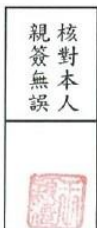 核對本人
親簽無誤